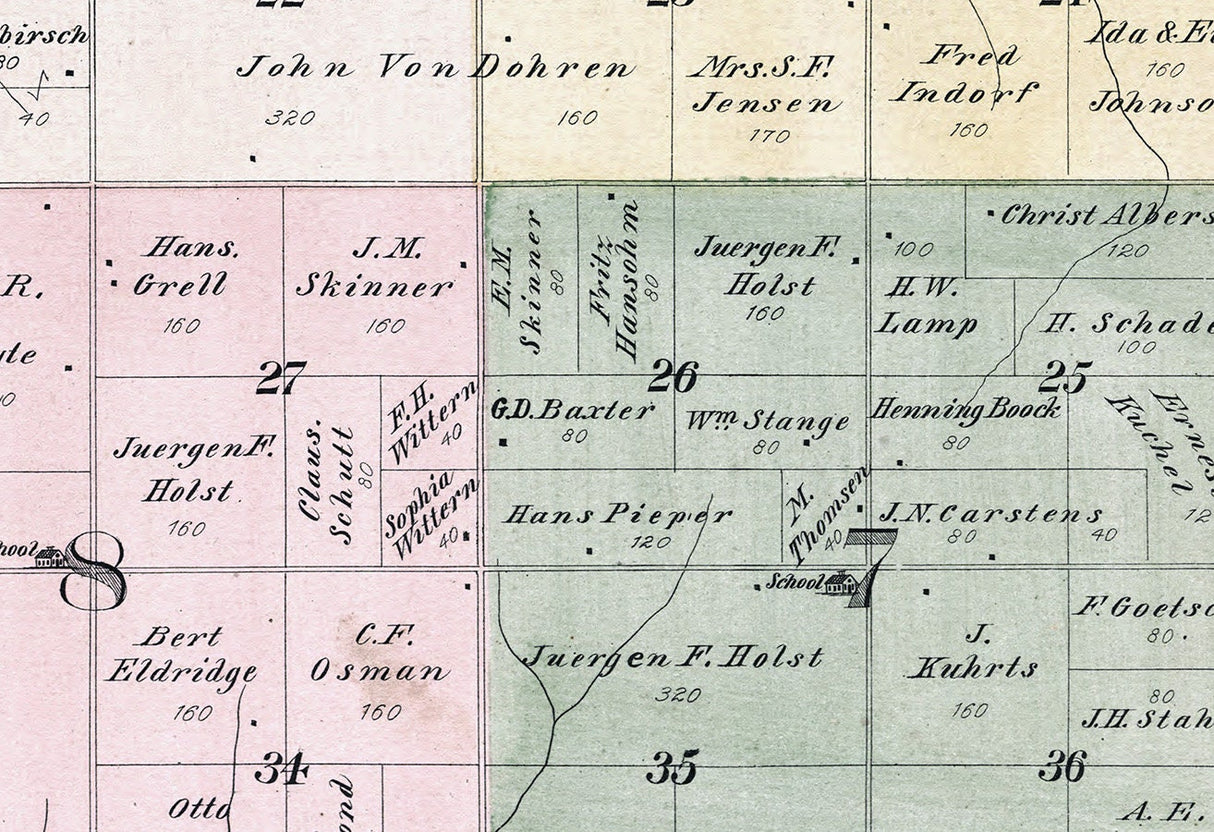 22
23
24
birsch
80
40
John Von Dohren
320
160
Mrs. S. F.
Jensen
170
Fred
Indorf
160
Ida & E
160
Johnso
Hans.
Grell
160
J. M.
Skinner
160
E. M.
Skinner
80
Fritz
Hansohm
80
Juergen F.
Holst
160
100
H. W.
Lamp
Christ Albers
120
H. Schade
100
R.
27
26
25
Juergen F.
Holst
160
Claus.
Schutt
80
F. H.
Wittern
40
Sophia
Wittern
40
G. D. Baxter
80
Wm Stange
80
Henning Boock
80
Ernes
Kuchel
12
Hans Pieper
120
M.
Thomsen
40
J. N. Carstens
80
40
hool
8
School
7
Bert
Eldridge
160
C. F.
Osman
160
Juergen F. Holst
320
J.
Kuhrts
160
F. Goetsc
80
80
J. H. Stah
34
35
36
Otto
ond
A. E.